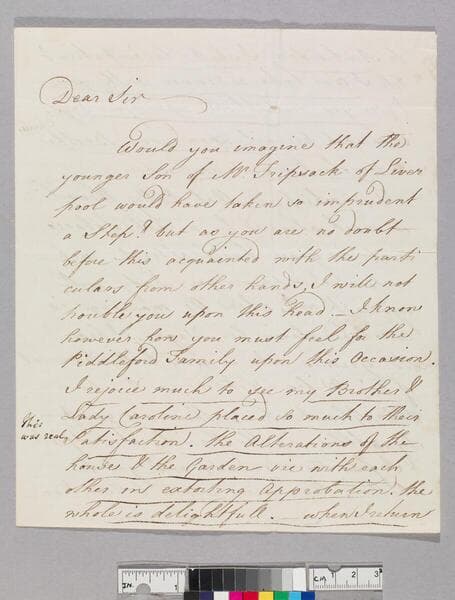 Dear Sir
Would you imagine that the
younger Son of Mr Tripsack of Liver
pool would have taken so imprudent
a Step? but as you are no doubt
before this acquainted with the parti
culars from other hands, I will not
trouble you upon this head — I know
however how you must feel for the
Piddleford Family upon this Occasion.
I rejoice much to see my Brother &
Lady Caroline placed so much to their
this
was real
Satisfaction. the Alterations of the
house & the Garden vie with each
other in extorting Approbation. the
whole is delightfull. when I return
IN.
1
CM
1 2 3